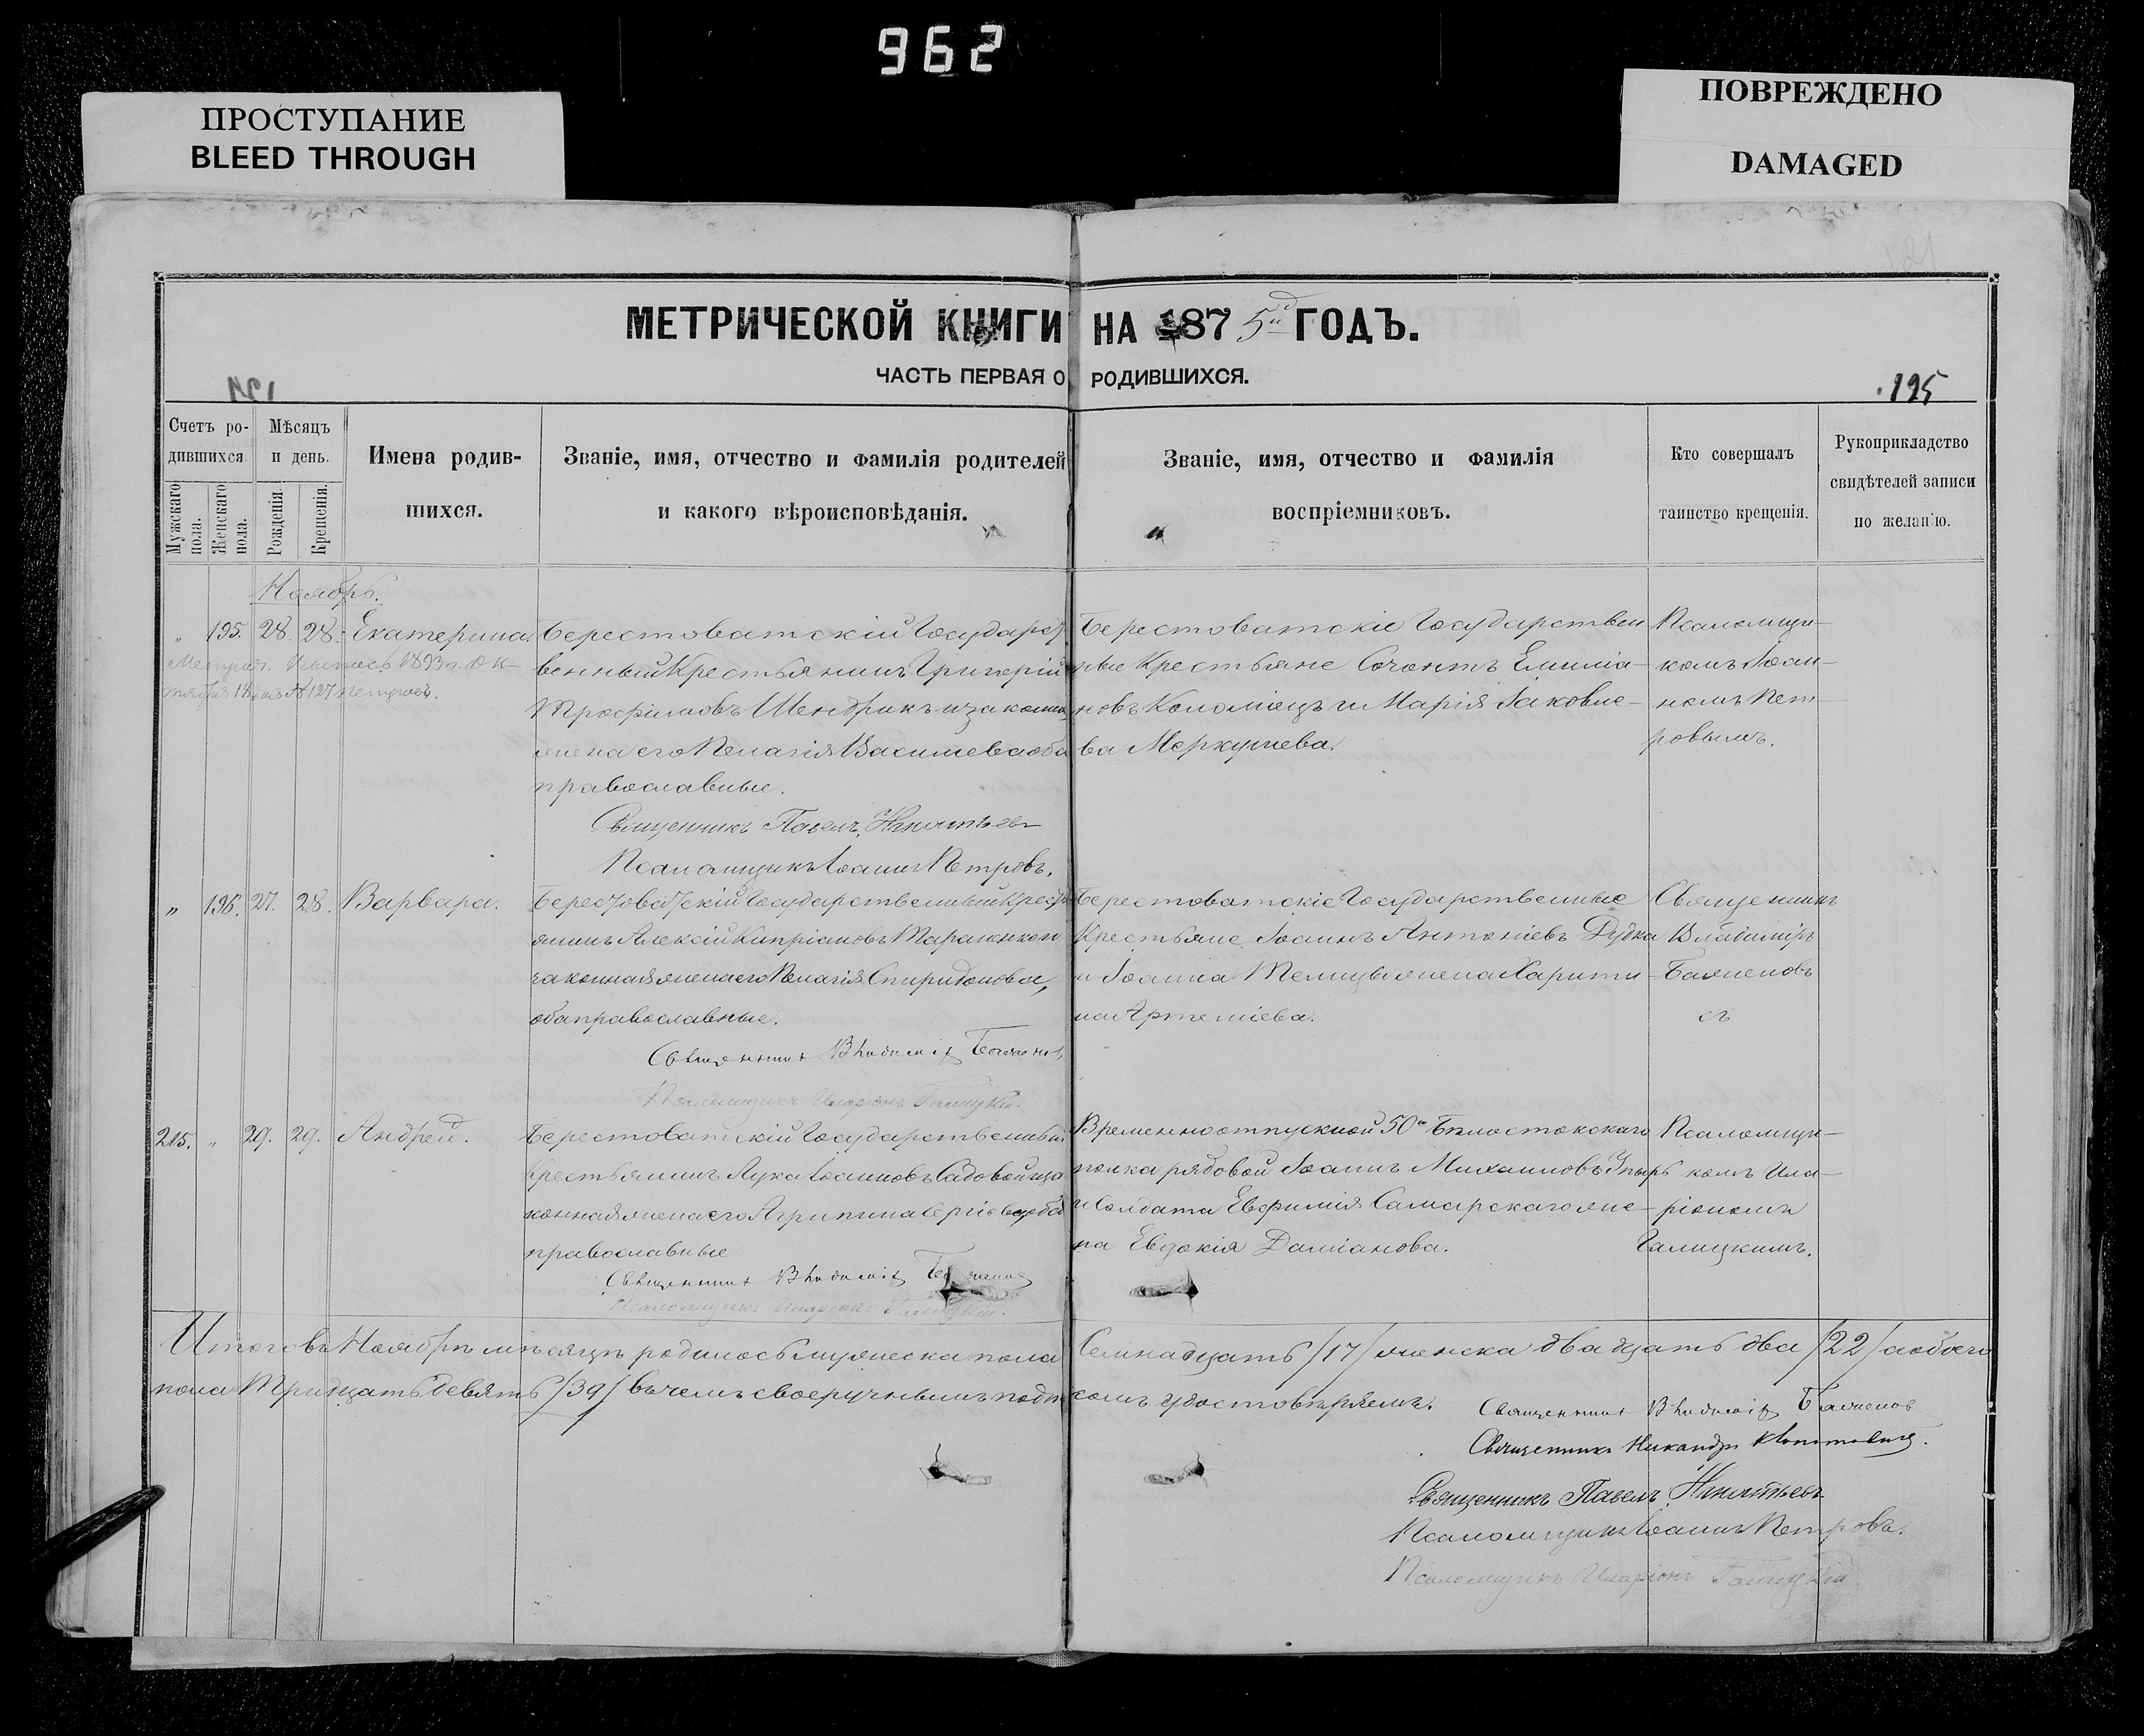 962
ПРОСТУПАНИЕ
BLEED THROUGH
ПОВРЕЖДЕНО
DAMAGED
МЕТРИЧЕСКОЙ КНИГИ НА 1875й ГОДЪ.
ЧАСТЬ ПЕРВАЯ О РОДИВШИХСЯ.
195
Счетъ родившихся.
Мужскаго пола.
Женскаго пола.
Мѣсяцъ и день.
Рожденія.
Крещенія.
Имена родившихся.
Званіе, имя, отчество и фамилія родителей
и какого вѣроисповѣданія.
Званіе, имя, отчество и фамилія
воспріемниковъ.
Кто совершалъ
таинство крещенія.
Рукоприкладство
свидѣтелей записи
по желанію.
Ноябрь.
„ 195. 28. 28. Екатерина.
Берестоватскій Государст
венный Крестьянинъ Григорій
Трофимовъ Шендрикъ и закон
жена его Пелагія Васильева оба
православные.
Священникъ Павелъ
Псаломщикъ Іоаннъ Петровъ.
Берестоватскіе Государствен
ные Крестьяне Созонтъ Емиліа-
новъ Коломіецъ и Марія Іаковле-
ва Меркушева.
Псаломщи-
комъ Іоан-
номъ Пет-
ровымъ.
„ 196. 27. 28. Варвара.
Берестоватскій Государственный Крест
янинъ Алексій Кипріановъ Тараненко и
законная жена его Пелагія Спиридонова,
оба православные.
Священникъ Владиміръ Баженовъ
Псаломщикъ Иларіонъ Галицкій.
Берестоватскіе Государственные
Крестьяне Іоаннъ Антоніевъ Дудка
и Іоанна Телицы жена Харити
на Артеміева.
Священникъ
Владиміръ
Баженовъ
215. „ 29. 29. Андрей.
Берестоватскій Государственный
Крестьянинъ Лука Іоанновъ Садовой и за
конная жена его Агрипина Сергіева оба
православные
Священникъ Владиміръ Баженовъ
Псаломщикъ Иларіонъ Галицкій.
Временноотпускной 50го Бѣлостокскаго
полка рядовой Іоаннъ Михаиловъ
и Солдата Евфимія Самарскаго же-
на Евдокія Даміанова.
Псаломщи-
комъ Ила-
ріономъ
Галицкимъ.
Итого въ Ноябрѣ мѣсяцѣ родилось мужеска пола Семнадцать /17/ женска двадцать два /22/ а обоего
пола Тридцать девять /39/ въ чемъ своеручнымъ подписомъ удостовѣряемъ.
Священникъ Владиміръ Баженовъ
Священникъ Никандръ
Священникъ Павелъ
Псаломщикъ Іоаннъ Петровъ.
Псаломщикъ Иларіонъ Галицкій